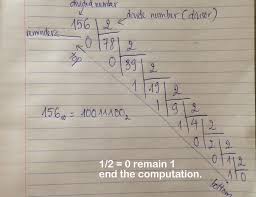 divided number
156 2 divide number (divisor)
reminders 0 78 2
top 0 39 2
1 19 2
1 9 2
156₁₀ = 10011100₂ 1 4 2
0 2 2
0 1 2
1/2 = 0 remain 1 1 0
end the computation. bottom